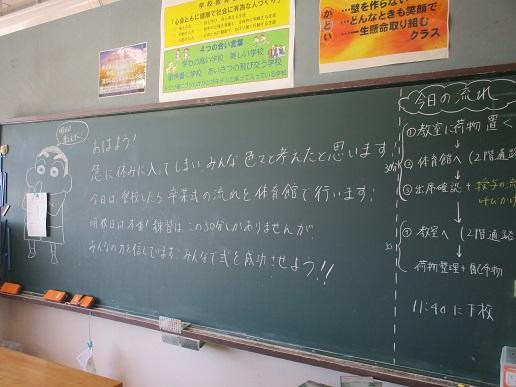 学校教育目標
「心身ともに健康で社会に有為な人づくり」
４つの合い言葉
学力の高い学校　美しい学校
歌声響く学校　あいさつの飛び交う学校
…壁を作らない
…どんなときも笑顔で
…一生懸命取り組む
クラス
おはよう!
急に休みに入ってしまいみんな色々と考えたと思います!
今日は登校したら卒業式の流れを体育館で行います!
明後日は本番!練習はこの30分しかありませんが、
みんなの力を信じています!みんなで式を成功させよう!!
今日の流れ
①教室に荷物置く
②体育館へ(2階通路
③出席確認+
④教室へ(2階通路
荷物整理+配布物
11:40に下校